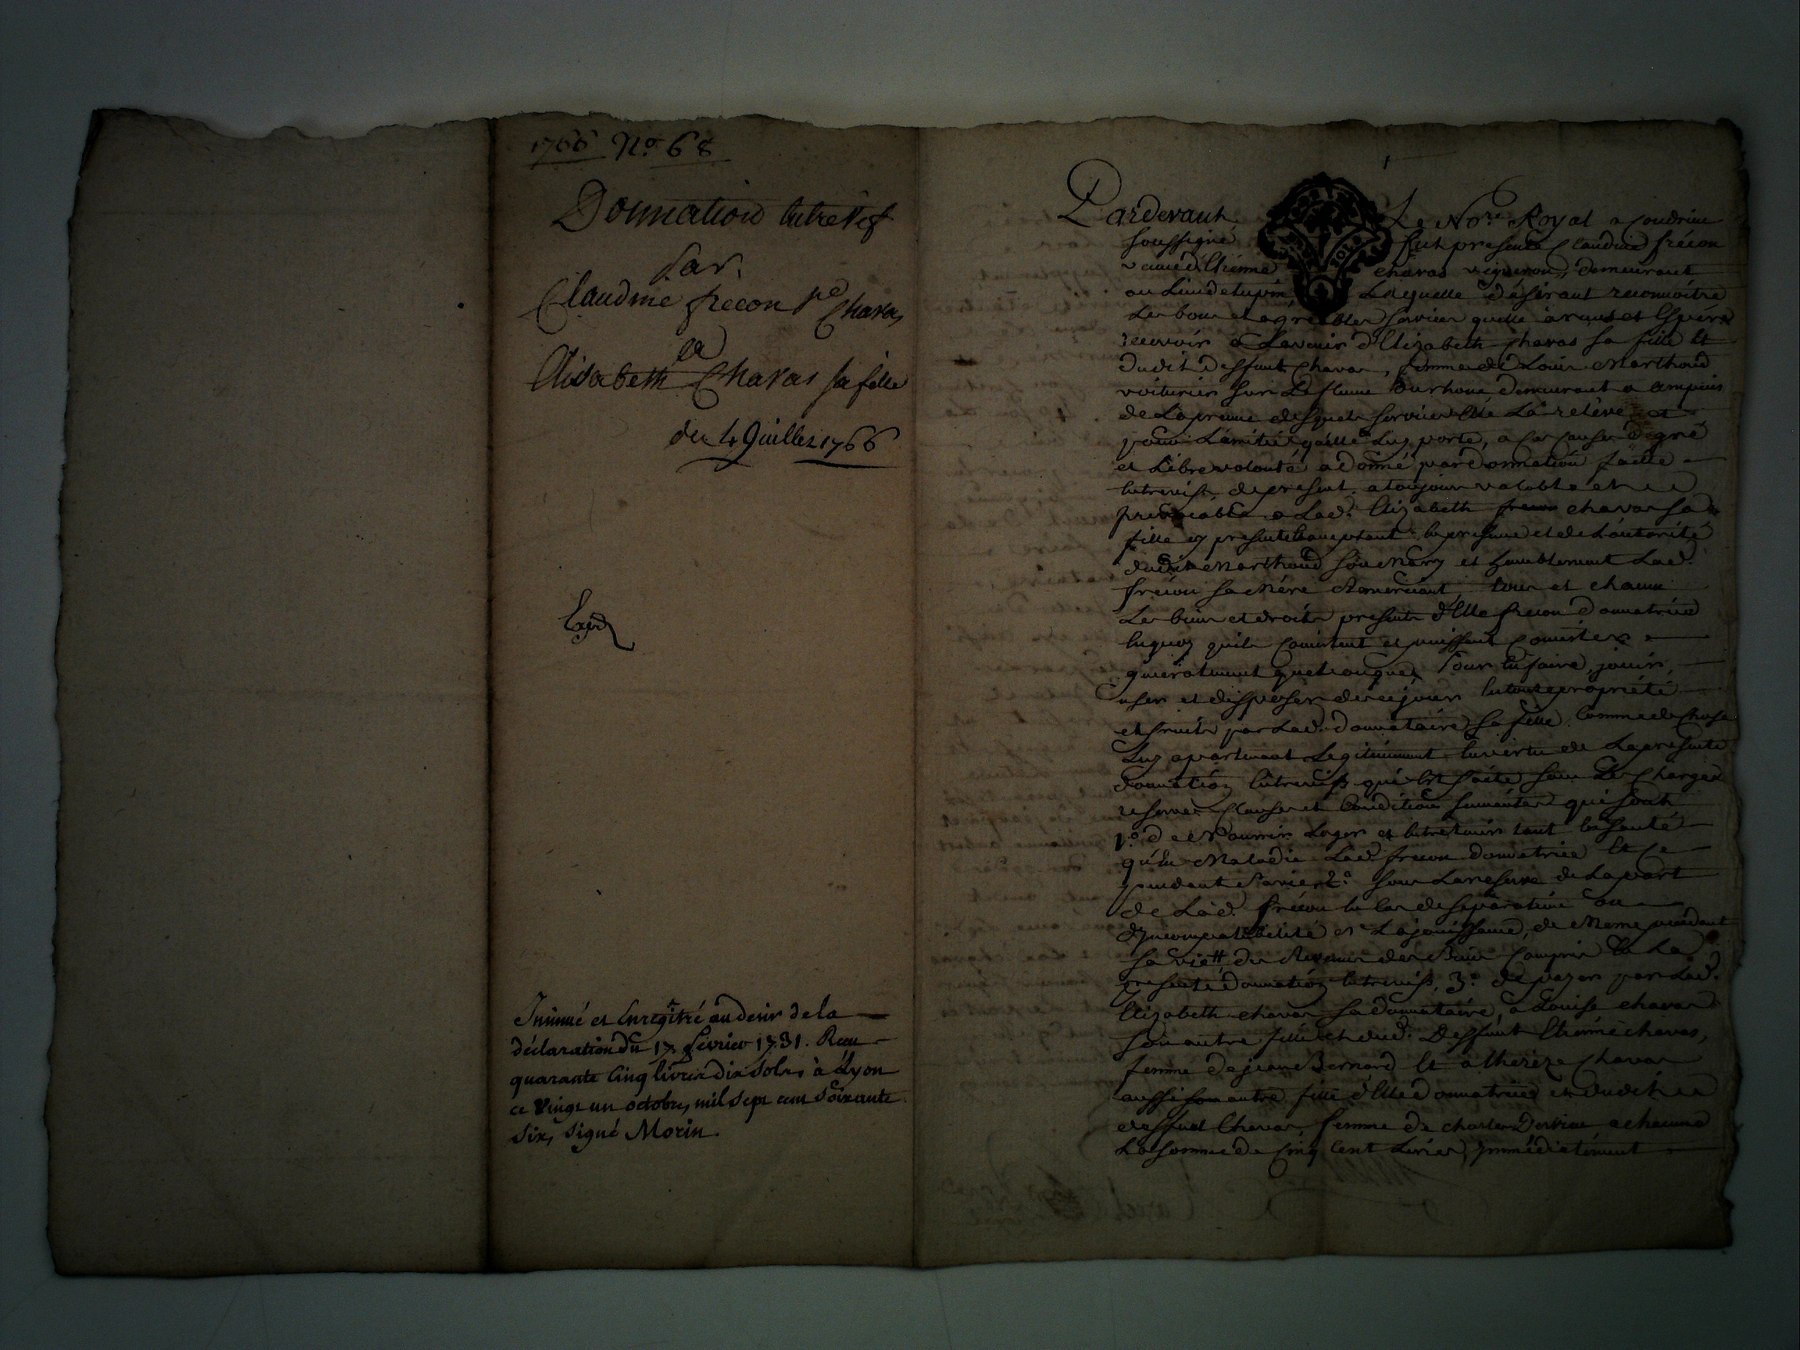 1766 No. 68
Donnation entrevif
par
Claudine frecon ve Chavas
a
Elisabeth Chavas sa fille
du 4 Juillet 1766
Insinué et Enregitré au desir de la
déclaration du 17 fevrier 1731. Recu
quarante Cinq livres dix sols, à Lyon
ce Vingt un octobre, mil sept cent Soixante
Six, signé Morin.
1
Pardevant Le Nore Royal a Condrieu
soussigné fut presente Claudine frécon
veuve d'Etienne chavas vigneron, demeurant
au Lieu de tupin Laquelle désirant reconnoitre
Les bons et agréables services quelle a recus et Espere
recevoir a L'avenir d'Elizabeth chavas sa fille Et
dudit deffunt Chavas, femme de Louis Marthoud
voiturier sur Le fleuve du rhone demeurant a ampuis
de La preuve desquels services Elle La reléve et
pour L'amitié qu'elle Luy porte, a ces causes de gré
et Libre volonté a donné par donnation faitte
entrevifs de present a toujours valable et
irrevocable a Lad. Elizabeth chavas sa
fille icy presente acceptant de L'autorité
dudit Marthoud son Mary et humblement Lad.
frécon sa Mère Remerciant, tous et chacun
Les biens et droits presents d'Elle frecon donnatrice
en quoy qu'ils consistent et puissent consister
généralement quelconques, Pour en faire, jouir,
user et disposer dez ce jour en toute propriété
et fruits par Lad. donnataire sa fille comme de Chose
Luy apartenant Legitimement en vertu de La presente
donnation entrevifs qui Est faite sous Les Charges
reserves Clauses et Conditions suivantes qui sont
1o. de Nourrir Loger et Entretenir tant en santé
qu'en Maladie Lad. frecon donnatrice Et Ce
pendant sa vie 2o. sous La reserve de La part
de Lad. frécon en Cas de séparation ou
d'incompatibilité de La jouissance, de Meme pendant
sa vie du Revenu des Biens Compris En La
presente donnation entrevifs, 3o. de payer par Lad.
Elizabeth chavas sa donnataire, a Louise chavas
son autre fille et dud. Deffunt Etienne chavas,
femme de jean Bernard Et a thereze Chavas
aussi son autre fille d'Elle donnatrice et dudit
deffunt Chavas femme de charles a chacune
La somme de Cinq Cent Livres, immédiatement